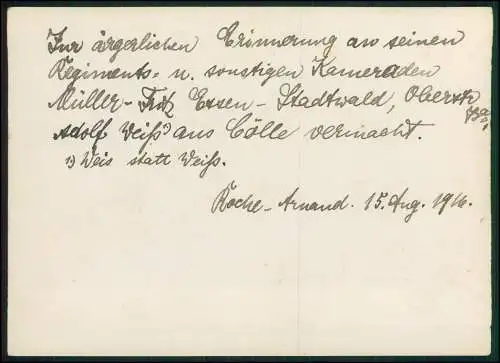 Zur ärgerlichen Erinnerung an seinen
Regiments- u. sonstigen Kameraden
Müller-Fritz Essen-Stadtwald, Oberstr
Adolf Weiß¹⁾ aus Cölle vermacht.
¹⁾ Weis statt Weiß.
Roche-Arnand. 15. Aug. 1916.